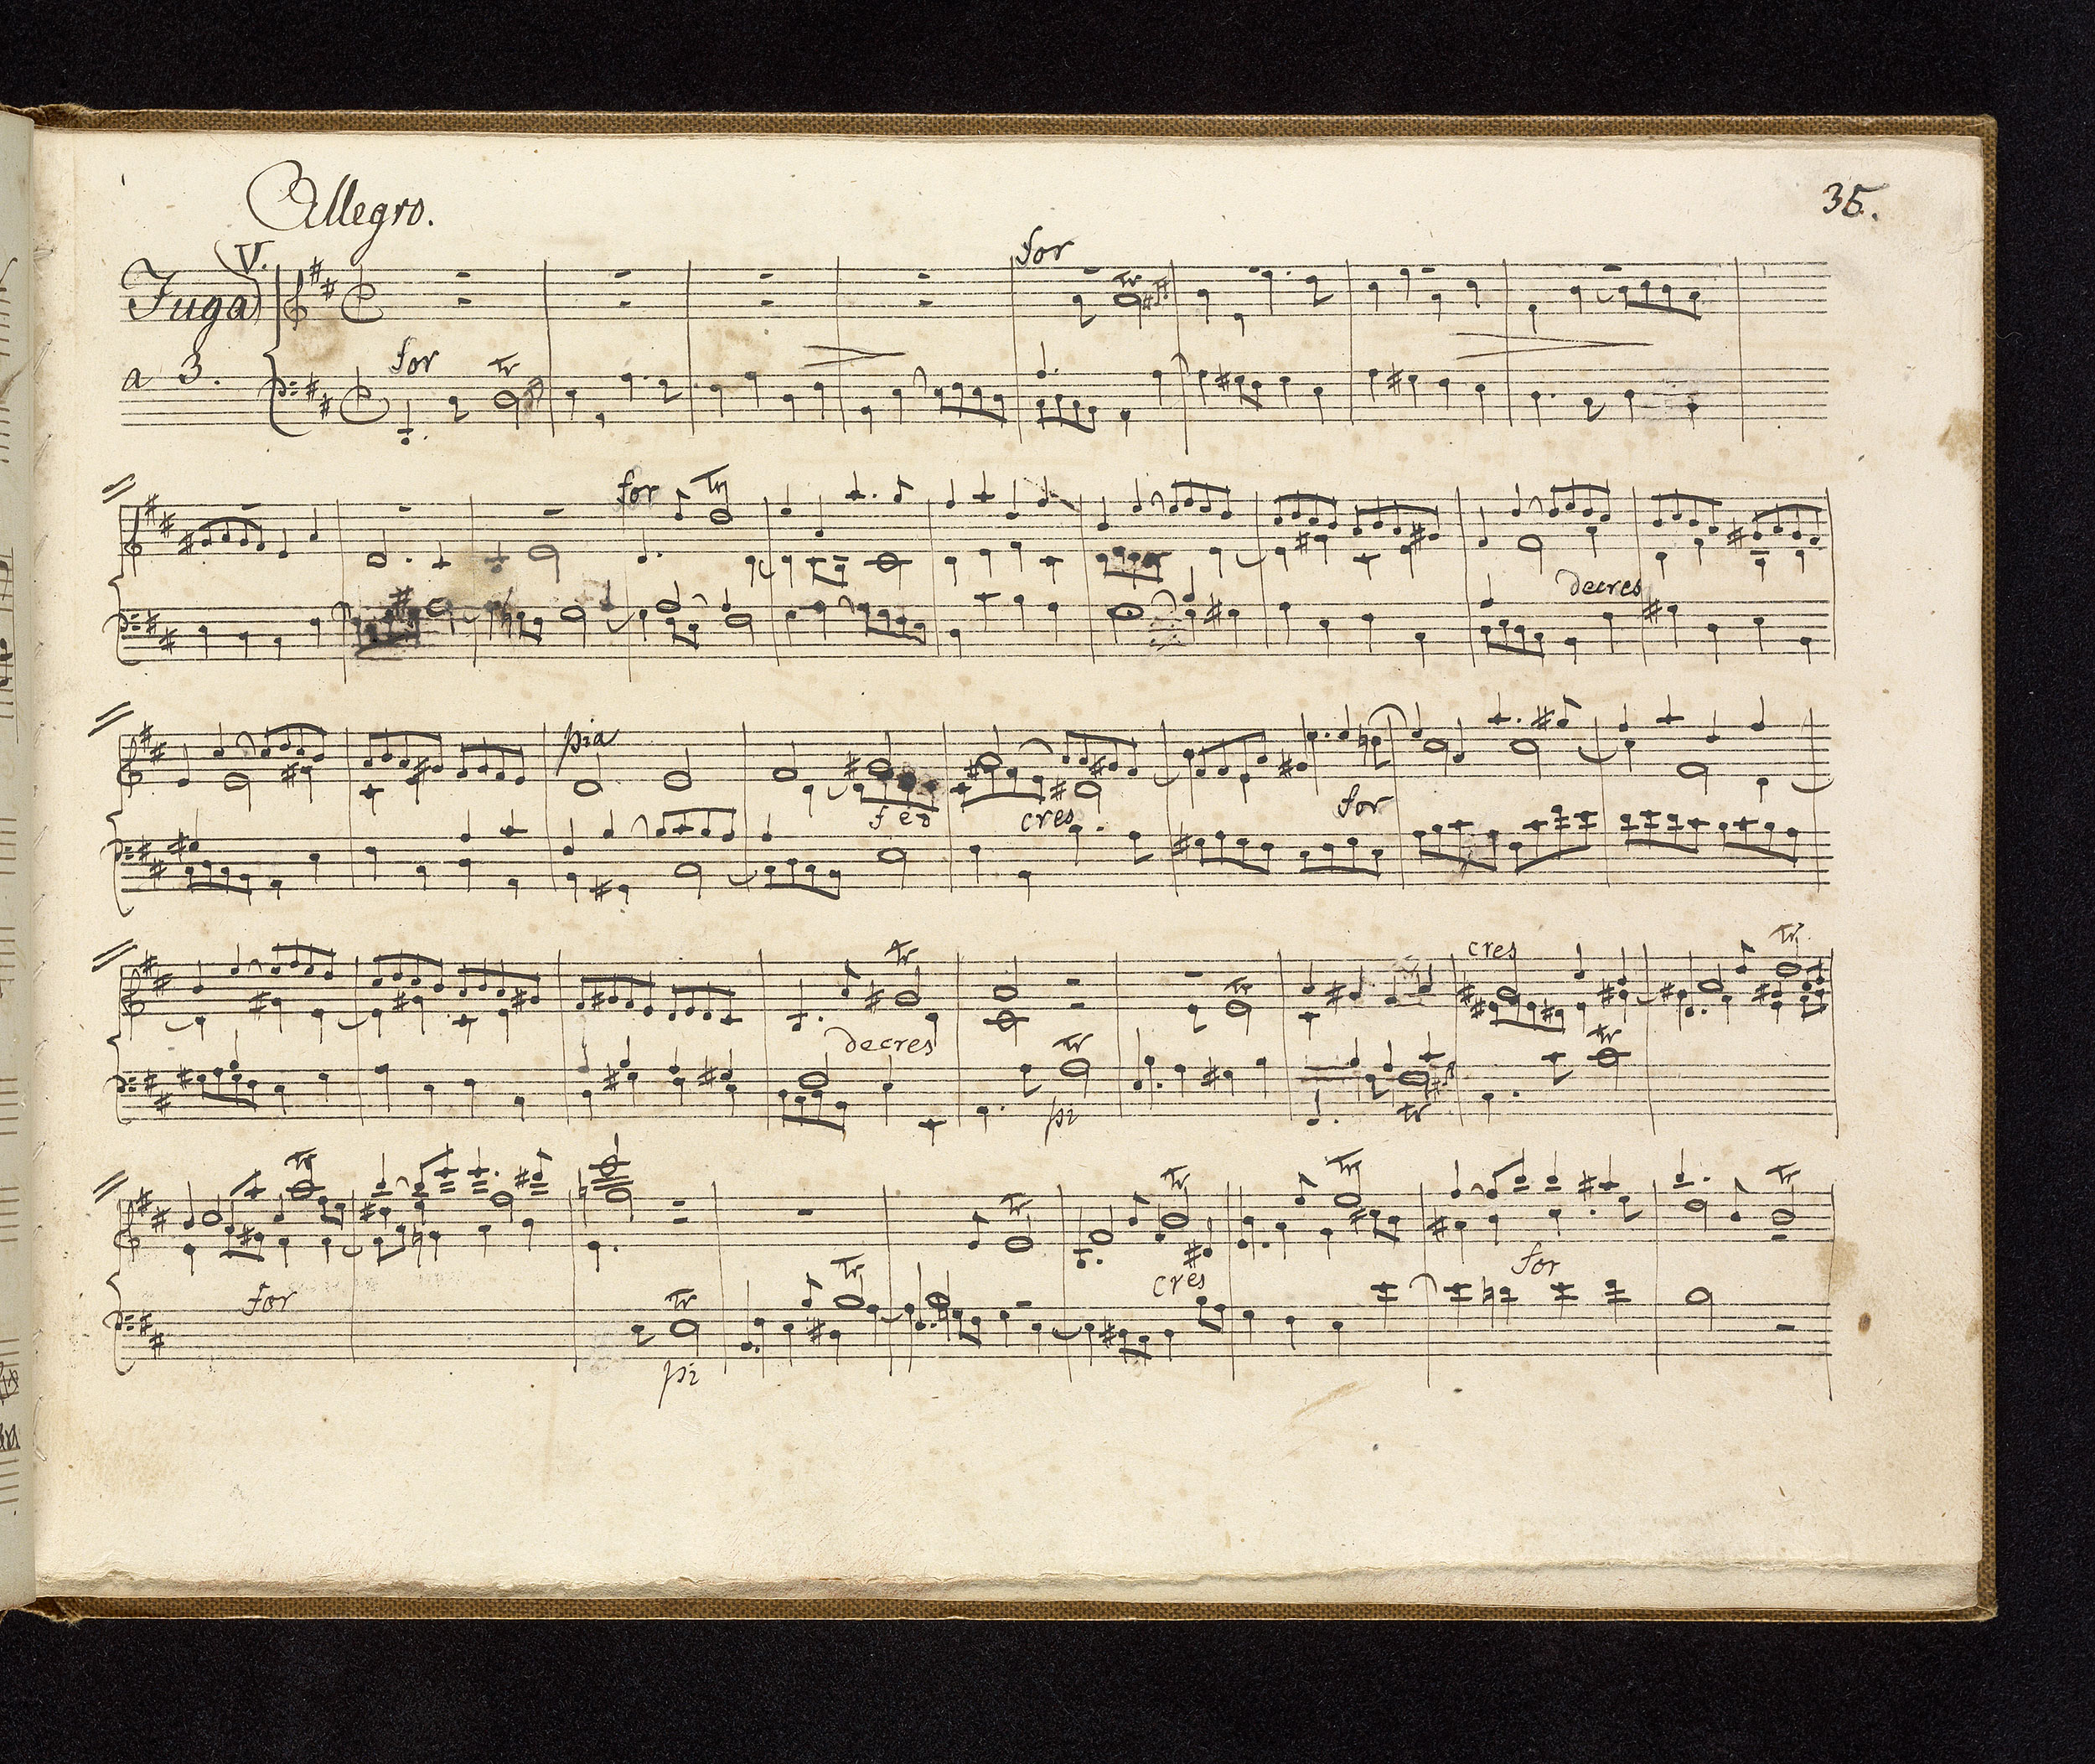 Allegro.
35.
V.
Fuga
a 3.
for
for
Tr
Tr
for
Tr
decres
pia
cres
for
cres
Tr
Tr
decres
Tr
Tr
Tr
pi
Tr
Tr
Tr
Tr
Tr
Tr
for
Tr
Tr
cres
for
pi